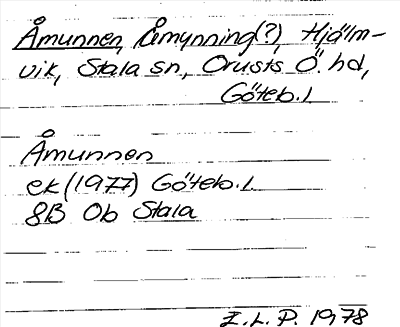 Åmunnen, Åmynning(?), Hjälm-
vik, Stala sn, Orusts Ö. hd,
Göteb. l.
Åmunnen
ek (1977) Göteb. l.
8B Ob Stala
I. L. P. 1978